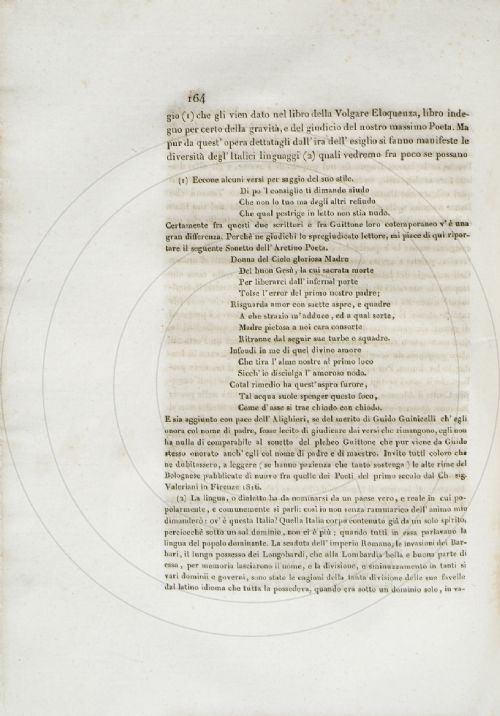 164
gio (1) che gli vien dato nel libro della Volgare Eloquenza, libro inde-
gno per certo della gravità, e del giudicio del nostro massimo Poeta. Ma
pur da quest' opera dettatagli dall' ira dell' esiglio si fanno manifeste le
diversità degl' Italici linguaggi (2) quali vedremo fra poco se possano
(1) Eccone alcuni versi per saggio del suo stile.
Di po 'l consiglio ti dimande aiudo
Che non lo tuo ma degli altri refiudo
Che qual postrige in letto non stia nudo.
Certamente fra questi due scrittori e fra Guittone loro cotemporaneo v' è una
gran differenza. Perchè ne giudichi lo spregiudicato lettore, mi piace di qui ripor-
tare il seguente Sonetto dell' Aretino Poeta.
Donna del Cielo gloriosa Madre
Del buon Gesù, la cui sacrata morte
Per liberarci dall' infernal porte
Tolse l' error del primo nostro padre;
Risguarda amor con saette aspre, e quadre
A che strazio m' adduce, ed a qual sorte,
Madre pietosa a noi cara consorte
Ritranne dal seguir sue turbe e squadre.
Infondi in me di quel divino amore
Che tira l' alme nostre al primo loco
Sicch' io disciolga l' amoroso nodo.
Cotal rimedio ha quest' aspro furore,
Tal acqua suole spenger questo foco,
Come d' asse si trae chiodo con chiodo.
E sia aggiunto con pace dell' Alighieri, se del merito di Guido Guinicelli ch' egli
onora col nome di padre, fosse lecito di giudicare dai versi che rimangono, egli non
ha nulla di comparabile al sonetto del plebeo Guittone che pur viene da Guido
stesso onorato anch' egli col nome di padre e di maestro. Invito tutti coloro che
ne dubitassero, a leggere (se hanno pazienza che tanto sostenga) le alte rime del
Bolognese pubblicate di nuovo fra quelle dei Poeti del primo secolo dal Ch. sig.
Valeriani in Firenze 1816.
(2) La lingua, o dialetto ha da nominarsi da un paese vero, e reale in cui po-
polarmente, e comunemente si parli: così io non senza rammarico dell' animo mio
dimanderò: ov' è questa Italia? Quella Italia corpo contenuto già da un solo spirito,
perciocchè sotto un sol dominio, non ci è più; quando tutti in essa parlavano la
lingua del popolo dominante. La scaduta dell' imperio Romano, le invasioni dei Bar-
bari, il lungo possesso dei Longobardi, che alla Lombardia bella e buona parte di
essa, per memoria lasciarono il nome, e la divisione, e sminuzzamento in tanti sì
vari dominii e governi, sono state le cagioni della tanta divisione delle sue favelle
dal latino idioma che tutta la possedeva, quando era sotto un dominio solo, in va-